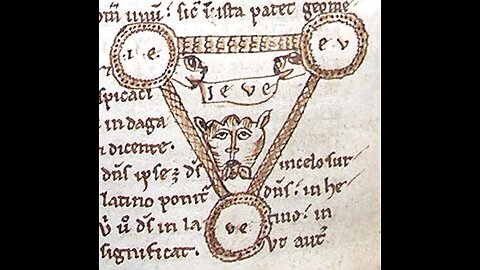 unū: sic̄ ista patet geome
·i·e· e v
ieve
spicaci
in daga
dicente.
dn̄s ipse ⁊ ds̄ in celo sur
latino ponit᷑ dn̄s: in he
ds̄ in la ve tino: in
significat. ut aut᷑